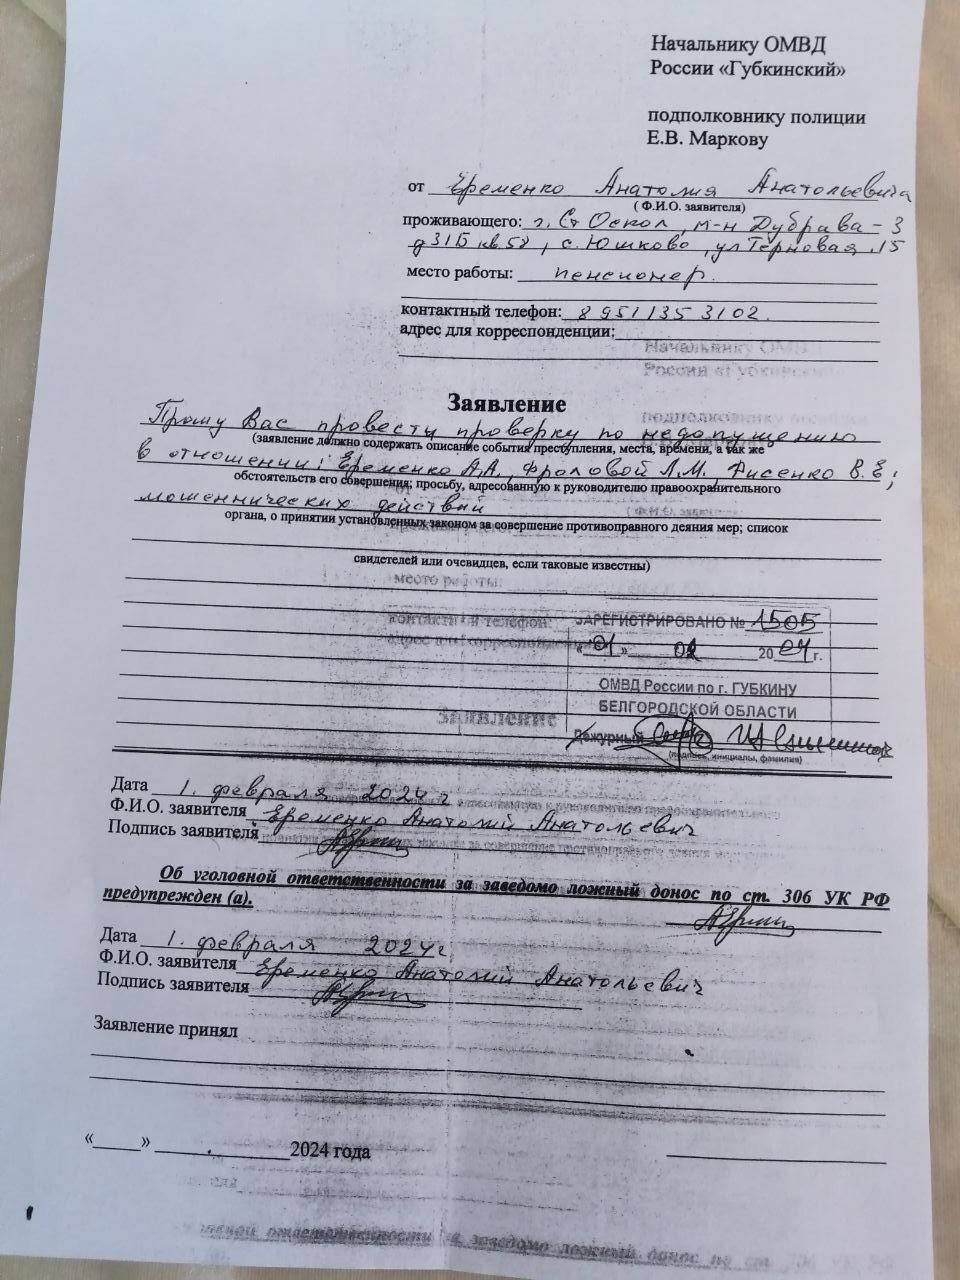 Начальнику ОМВД
России «Губкинский»
подполковнику полиции
Е.В. Маркову
от Еременко Анатолия Анатольевича
( Ф.И.О. заявителя)
проживающего: г. Ст Оскол, м-н Дубрава - 3
д 31Б кв. 58, с. Юшково, ул Терновая 15
место работы: пенсионер.
контактный телефон: 8 951 135 3102.
адрес для корреспонденции:
Начальнику ОМВД
России
Заявление
Прошу Вас провести проверку по недопущению
(заявление должно содержать описание события преступления, места, времени, а так же
в отношении: Еременко А.А, Фроловой Л.М. Фисенко В.Е;
обстоятельств его совершения; просьбу, адресованную к руководителю правоохранительного
мошеннических действий
органа, о принятии установленных законом за совершение противоправного деяния мер; список
свидетелей или очевидцев, если таковые известны)
место работы:
контактный телефон: ЗАРЕГИСТРИРОВАНО № 1505
«01» 02 2024 г.
ОМВД России по г. ГУБКИНУ
БЕЛГОРОДСКОЙ ОБЛАСТИ
Заявление
Дежурный
(подпись, инициалы, фамилия)
Дата 1. февраля 2024 г
Ф.И.О. заявителя Еременко Анатолий Анатольевич
Подпись заявителя
Об уголовной ответственности за заведомо ложный донос по ст. 306 УК РФ
предупрежден (а).
Дата 1. февраля 2024г
Ф.И.О. заявителя Еременко Анатолий Анатольевич
Подпись заявителя
Заявление принял
«____» ______________2024 года
ответственности за заведомо ложный донос по ст.